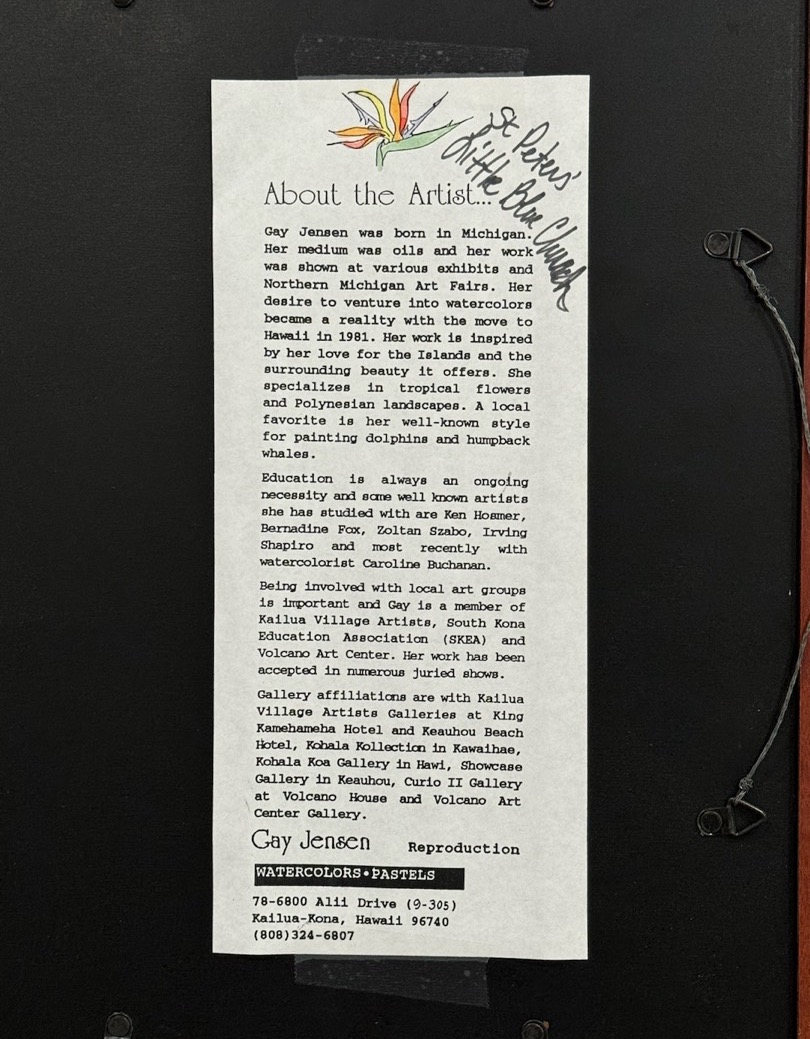 St Peters'
Little Blue Church
About the Artist...
Gay Jensen was born in Michigan.
Her medium was oils and her work
was shown at various exhibits and
Northern Michigan Art Fairs. Her
desire to venture into watercolors
became a reality with the move to
Hawaii in 1981. Her work is inspired
by her love for the Islands and the
surrounding beauty it offers. She
specializes in tropical flowers
and Polynesian landscapes. A local
favorite is her well-known style
for painting dolphins and humpback
whales.
Education is always an ongoing
necessity and some well known artists
she has studied with are Ken Hosmer,
Bernadine Fox, Zoltan Szabo, Irving
Shapiro and most recently with
watercolorist Caroline Buchanan.
Being involved with local art groups
is important and Gay is a member of
Kailua Village Artists, South Kona
Education Association (SKEA) and
Volcano Art Center. Her work has been
accepted in numerous juried shows.
Gallery affiliations are with Kailua
Village Artists Galleries at King
Kamehameha Hotel and Keauhou Beach
Hotel, Kohala Kollection in Kawaihae,
Kohala Koa Gallery in Hawi, Showcase
Gallery in Keauhou, Curio II Gallery
at Volcano House and Volcano Art
Center Gallery.
Gay Jensen Reproduction
WATERCOLORS•PASTELS
78-6800 Alii Drive (9-305)
Kailua-Kona, Hawaii 96740
(808)324-6807